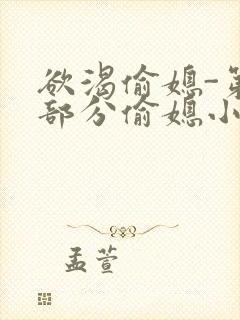 欲渴偷媳-第
部分偷媳小
孟萱